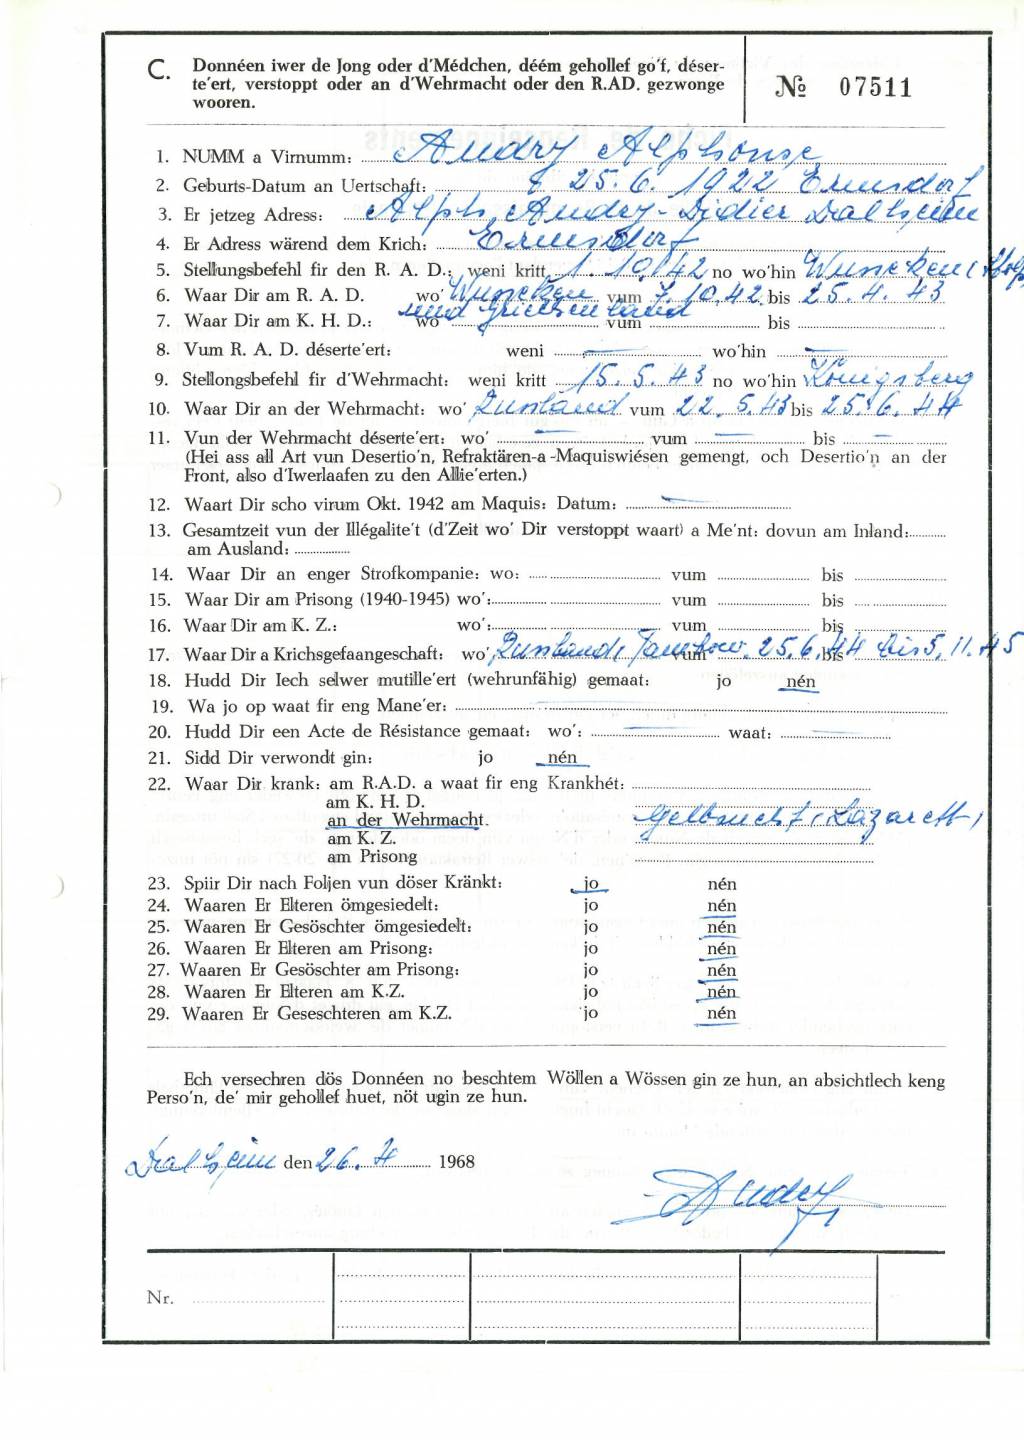 C. Donnéen iwer de Jong oder d'Médchen, déém gehollef go'f, déser-
te'ert, verstoppt oder an d'Wehrmacht oder den R.AD. gezwonge
wooren.
№ 07511
1. NUMM a Virnumm: Audry Alphonse
2. Geburts-Datum an Uertschaft: 25.6.1922 Ermsdorf
3. Er jetzeg Adress: Alph. Audry-Didier Dalheim
4. Er Adress wärend dem Krich: Ermsdorf
5. Stellungsbefehl fir den R. A. D.: weni kritt 1. 10. 42 no wo'hin Wuncken
6. Waar Dir am R. A. D. wo' Wuncken vum 7.10.42. bis 25.4.43
und Griechenland
7. Waar Dir am K. H. D.: wo' vum bis
8. Vum R. A. D. déserte'ert: weni — wo'hin —
9. Stellongsbefehl fir d'Wehrmacht: weni kritt 15.5.43 no wo'hin Königsberg
10. Waar Dir an der Wehrmacht: wo' Russland vum 22.5.43 bis 25.6.44
11. Vun der Wehrmacht déserte'ert: wo' — vum — bis —
(Hei ass all Art vun Desertio'n, Refraktären-a -Maquiswiésen gemengt, och Desertio'n an der
Front, also d'Iwerlaafen zu den Allie'erten.)
12. Waart Dir scho virum Okt. 1942 am Maquis: Datum: —
13. Gesamtzeit vun der Illégalite't (d'Zeit wo' Dir verstoppt waart) a Me'nt: dovun am Inland:
am Ausland:
14. Waar Dir an enger Strofkompanie: wo: vum bis
15. Waar Dir am Prisong (1940-1945) wo': vum bis
16. Waar Dir am K. Z.: wo': vum bis
17. Waar Dir a Krichsgefaangeschaft: wo' Russland, Tambow vum 25.6.44 bis 5.11.45
18. Hudd Dir Iech selwer mutille'ert (wehrunfähig) gemaat: jo nén
19. Wa jo op waat fir eng Mane'er: —
20. Hudd Dir een Acte de Résistance gemaat: wo': — waat: —
21. Sidd Dir verwondt gin: jo nén
22. Waar Dir krank: am R.A.D. a waat fir eng Krankhét:
am K. H. D.
an der Wehrmacht. Gelbsucht, Lazarett,
am K. Z.
am Prisong
23. Spiir Dir nach Foljen vun döser Kränkt: jo nén
24. Waaren Er Elteren ömgesiedelt: jo nén
25. Waaren Er Gesöschter ömgesiedelt: jo nén
26. Waaren Er Elteren am Prisong: jo nén
27. Waaren Er Gesöschter am Prisong: jo nén
28. Waaren Er Elteren am K.Z. jo nén
29. Waaren Er Geseschteren am K.Z. jo nén
Ech versechren dös Donnéen no beschtem Wöllen a Wössen gin ze hun, an absichtlech keng
Perso'n, de' mir gehollef huet, nöt ugin ze hun.
Dalheim den 26. 4. 1968
Audry
Nr.